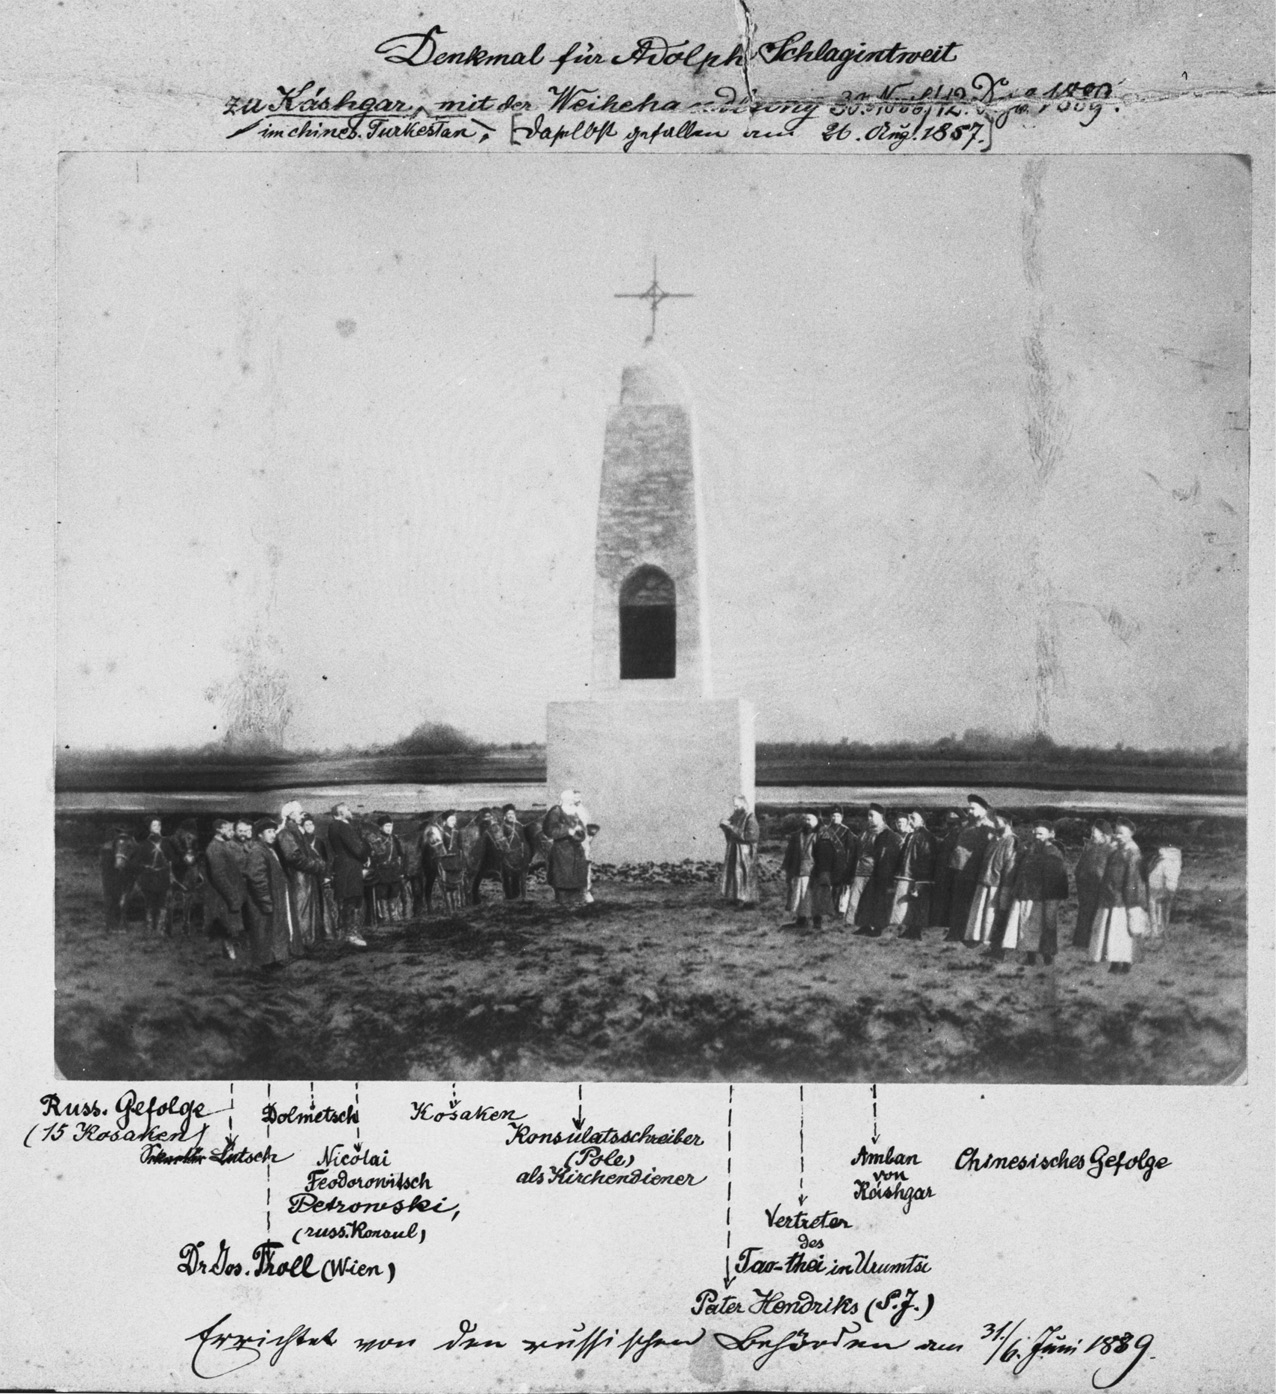 Denkmal für Adolph Schlagintweit
zu Káshgar, mit der Weihehandlung
im chines. Turkestan, [daselbst gefallen am 26. Aug. 1857.]
Russ. Gefolge
(15 Kosaken)
Lutsch
Dolmetsch
Nicolai
Feodorowitsch
Petrowski,
(russ. Konsul)
Dr Jos. Troll (Wien)
Kosaken
Konsulatsschreiber
(Pole)
als Kirchendiener
Pater Hendriks (S.J.)
Vertreter
des
Tao-thei in Urumtsi
Amban
von
Káshgar
Chinesisches Gefolge
Errichtet von den russischen Behörden am Juni 1889.